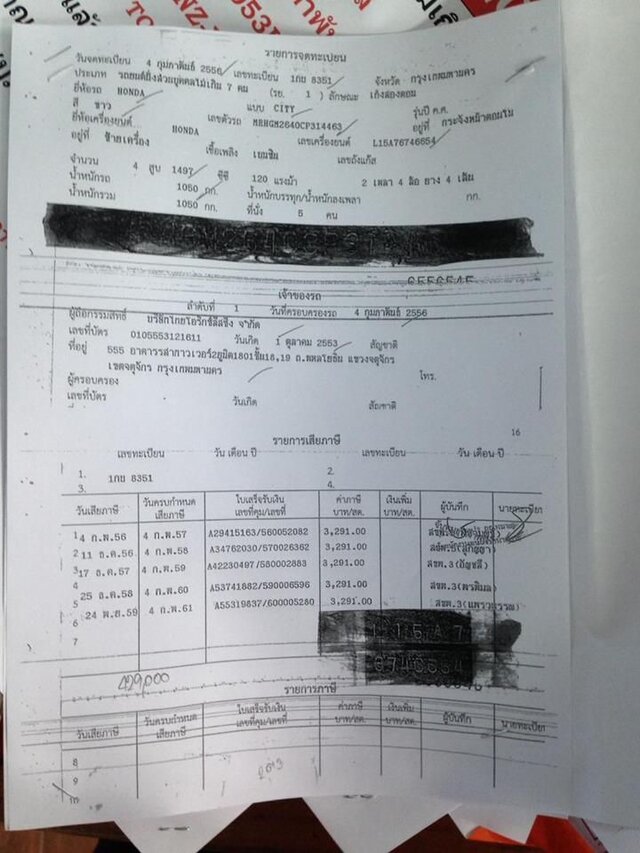 รายการจดทะเบียน
วันจดทะเบียน 4 กุมภาพันธ์ 2556 เลขทะเบียน 1กย 8351 จังหวัด กรุงเทพมหานคร
ประเภท รถยนต์นั่งส่วนบุคคลไม่เกิน 7 คน (รย. 1 ) ลักษณะ เก๋งสองตอน
ยี่ห้อรถ HONDA แบบ CITY รุ่นปี ค.ศ.
สี ขาว เลขตัวรถ MRHGM2640CP314463 อยู่ที่ กระจังหน้าตอนใน
ยี่ห้อเครื่องยนต์ HONDA เลขเครื่องยนต์ L15A76746654
อยู่ที่ ซ้ายเครื่อง เชื้อเพลิง เบนซิน เลขถังแก๊ส
จำนวน 4 สูบ 1497 ซีซี 120 แรงม้า 2 เพลา 4 ล้อ ยาง 4 เส้น
น้ำหนักรถ 1050 กก. น้ำหนักบรรทุก/น้ำหนักลงเพลา กก.
น้ำหนักรวม 1050 กก. ที่นั่ง 5 คน
เจ้าของรถ
ลำดับที่ 1 วันที่ครอบครองรถ 4 กุมภาพันธ์ 2556
ผู้ถือกรรมสิทธิ์ บริษัทไทยโอริกซ์ลีสซิ่ง จำกัด
เลขที่บัตร 0105553121611 วันเกิด 1 ตุลาคม 2553 สัญชาติ
ที่อยู่ 555 อาคารรสาทาวเวอร์2ยูนิต1801ชั้น18,19 ถ.พหลโยธิน แขวงจตุจักร
เขตจตุจักร กรุงเทพมหานคร
ผู้ครอบครอง โทร.
เลขที่บัตร วันเกิด สัญชาติ
16
รายการเสียภาษี
เลขทะเบียน วัน เดือน ปี เลขทะเบียน วัน เดือน ปี
1. 1กย 8351 2.
3. 4.
วันเสียภาษี วันครบกำหนดเสียภาษี ใบเสร็จรับเงิน เลขที่คุม/เลขที่ ค่าภาษี บาท/สต. เงินเพิ่ม บาท/สต. ผู้บันทึก นายทะเบียน
1 4 ก.พ.56 4 ก.พ.57 A29415163/560052082 3,291.00
2 11 ธ.ค.56 4 ก.พ.58 A34762030/570026362 3,291.00
3 17 ธ.ค.57 4 ก.พ.59 A42230497/580002883 3,291.00 สขพ.3(อัญชลี
4 25 ธ.ค.58 4 ก.พ.60 A53741882/590006596 3,291.00
5 24 พ.ย.59 4 ก.พ.61 A55319837/600005280 3,291.00
6
7
429,000
รายการภาษี
วันเสียภาษี วันครบกำหนดเสียภาษี ใบเสร็จรับเงิน เลขที่คุม/เลขที่ ค่าภาษี บาท/สต. เงินเพิ่ม บาท/สต. ผู้บันทึก นายทะเบียน
8
9
2013